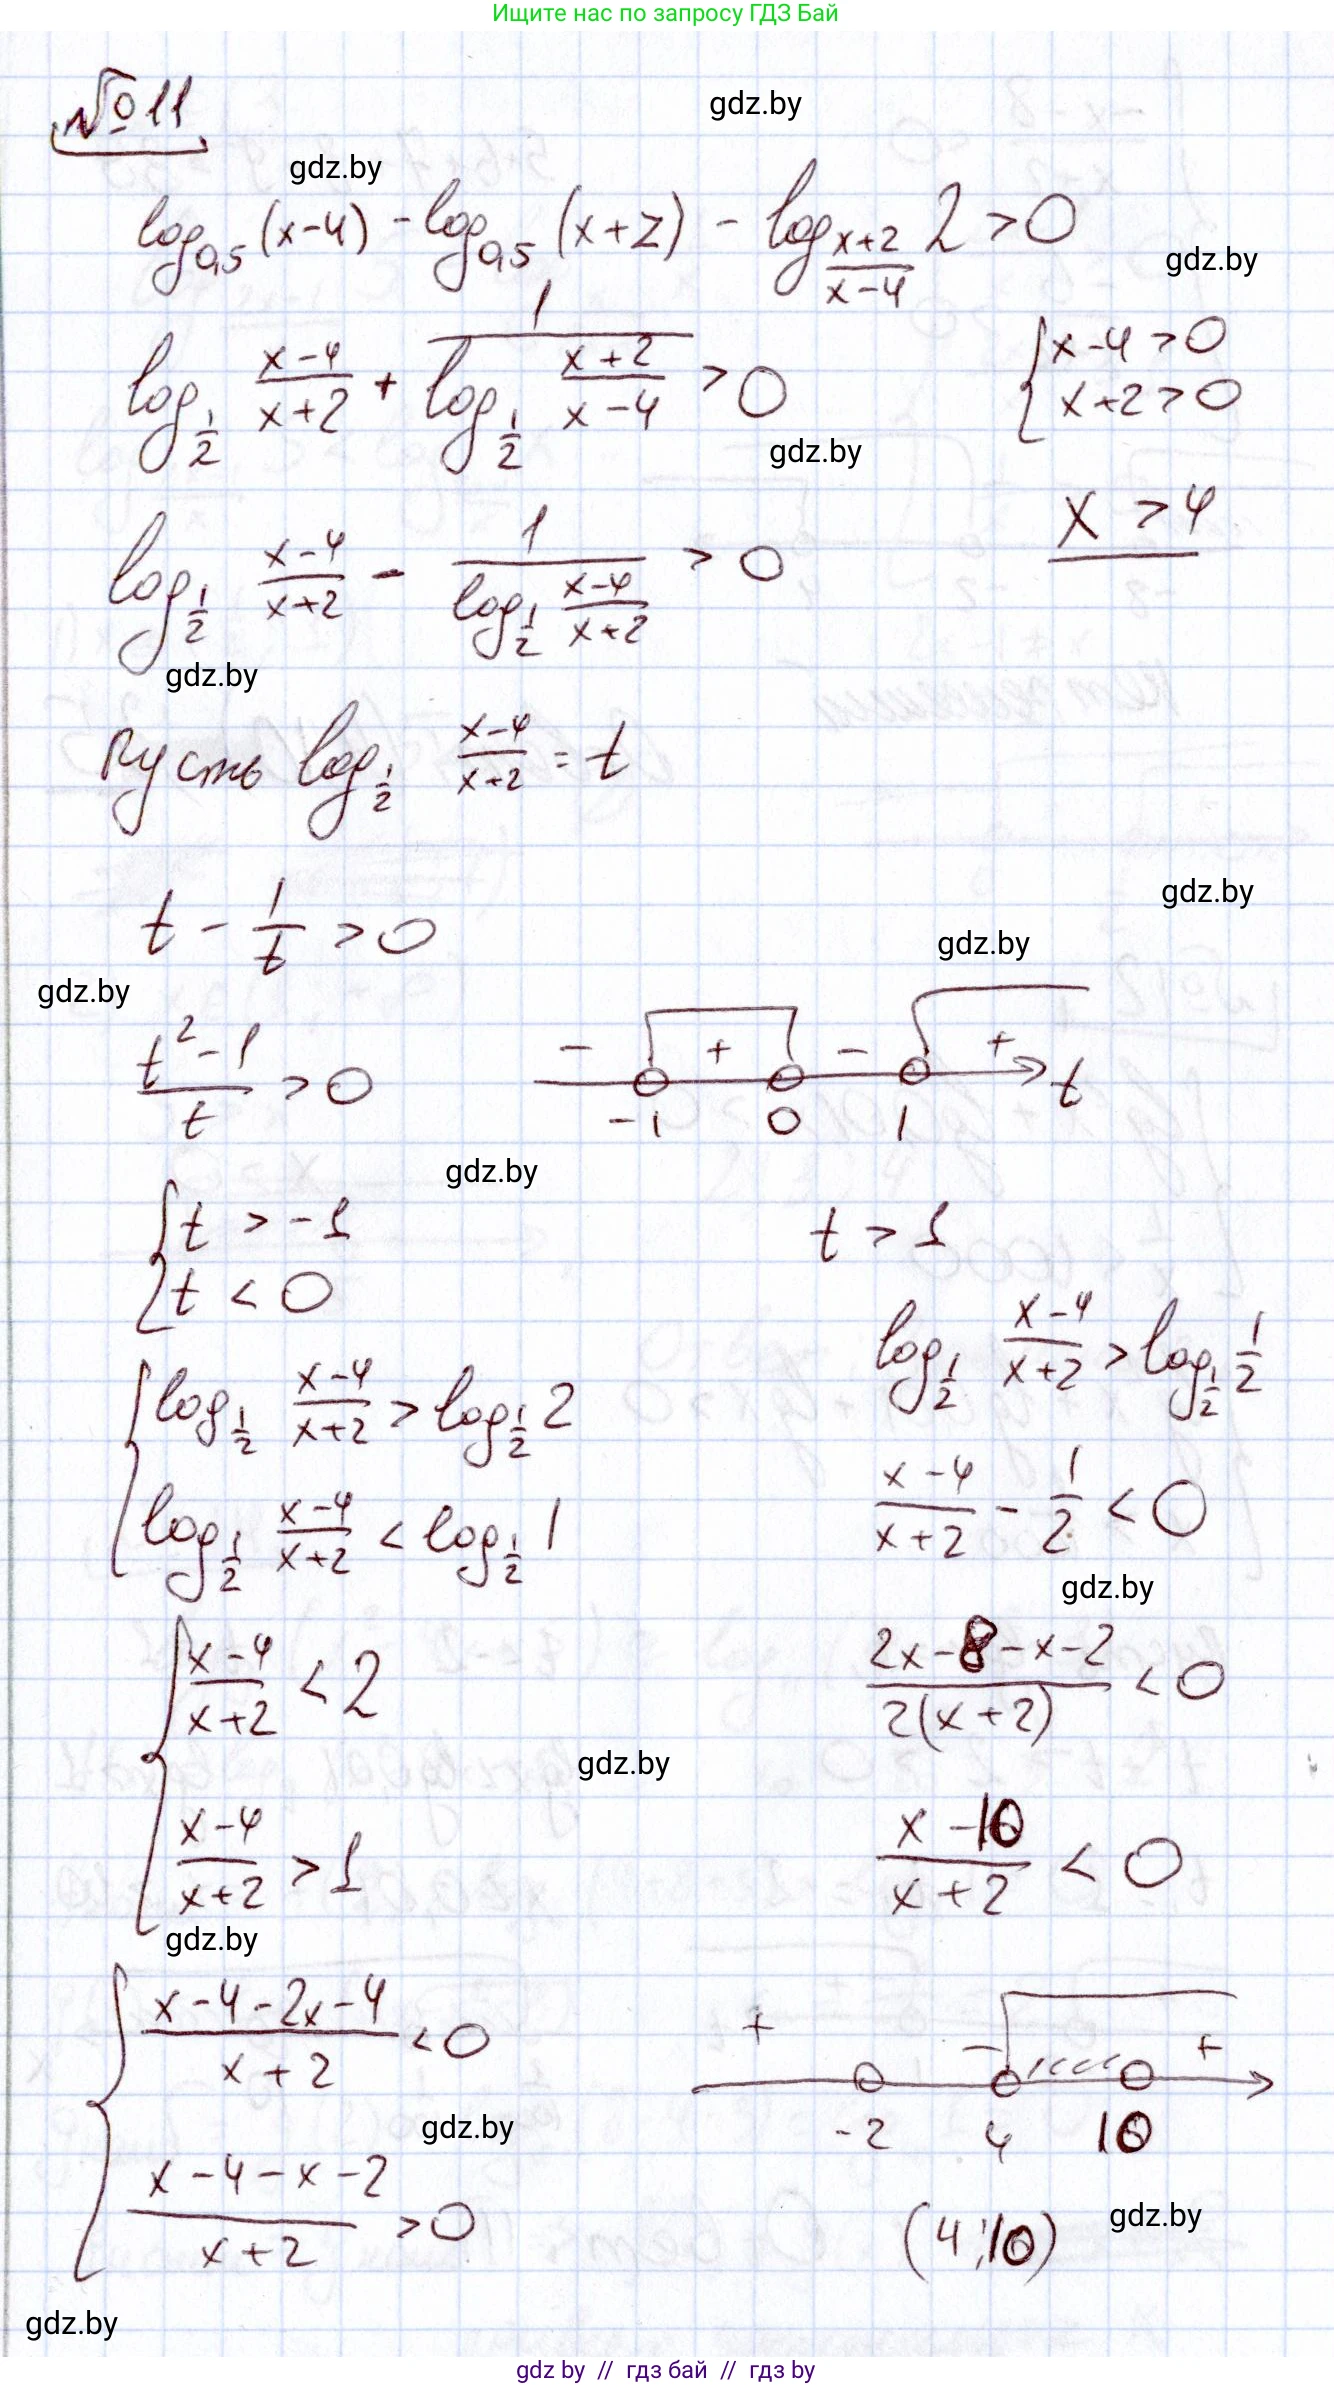 Ищите нас по запросу ГДЗ Бай
№11
gdz.by
gdz.by
log_{0,5} (x-4) - log_{0,5} (x+2) - log_{\frac{x+2}{x-4}} 2 > 0
gdz.by
log_{\frac{1}{2}} \frac{x-4}{x+2} + \frac{1}{log_{\frac{1}{2}} \frac{x+2}{x-4}} > 0
{ x-4 > 0
x+2 > 0
gdz.by
x > 4
log_{\frac{1}{2}} \frac{x-4}{x+2} - \frac{1}{log_{\frac{1}{2}} \frac{x-4}{x+2}} > 0
gdz.by
Пусть log_{\frac{1}{2}} \frac{x-4}{x+2} = t
gdz.by
t - \frac{1}{t} > 0
gdz.by
gdz.by
\frac{t^2-1}{t} > 0
- + - + t
-1 0 1
gdz.by
{ t > -1
t < 0
t > 1
log_{\frac{1}{2}} \frac{x-4}{x+2} > log_{\frac{1}{2}} \frac{1}{2}
{ log_{\frac{1}{2}} \frac{x-4}{x+2} > log_{\frac{1}{2}} 2
log_{\frac{1}{2}} \frac{x-4}{x+2} < log_{\frac{1}{2}} 1
\frac{x-4}{x+2} - \frac{1}{2} < 0
gdz.by
{ \frac{x-4}{x+2} < 2
\frac{x-4}{x+2} > 1
\frac{2x-8-x-2}{2(x+2)} < 0
gdz.by
\frac{x-10}{x+2} < 0
gdz.by
{ \frac{x-4-2x-4}{x+2} < 0
\frac{x-4-x-2}{x+2} > 0
+ - +
-2 4 10
gdz.by
(4;10)
gdz.by
gdz.by
gdz by // гдз бай // гдз by